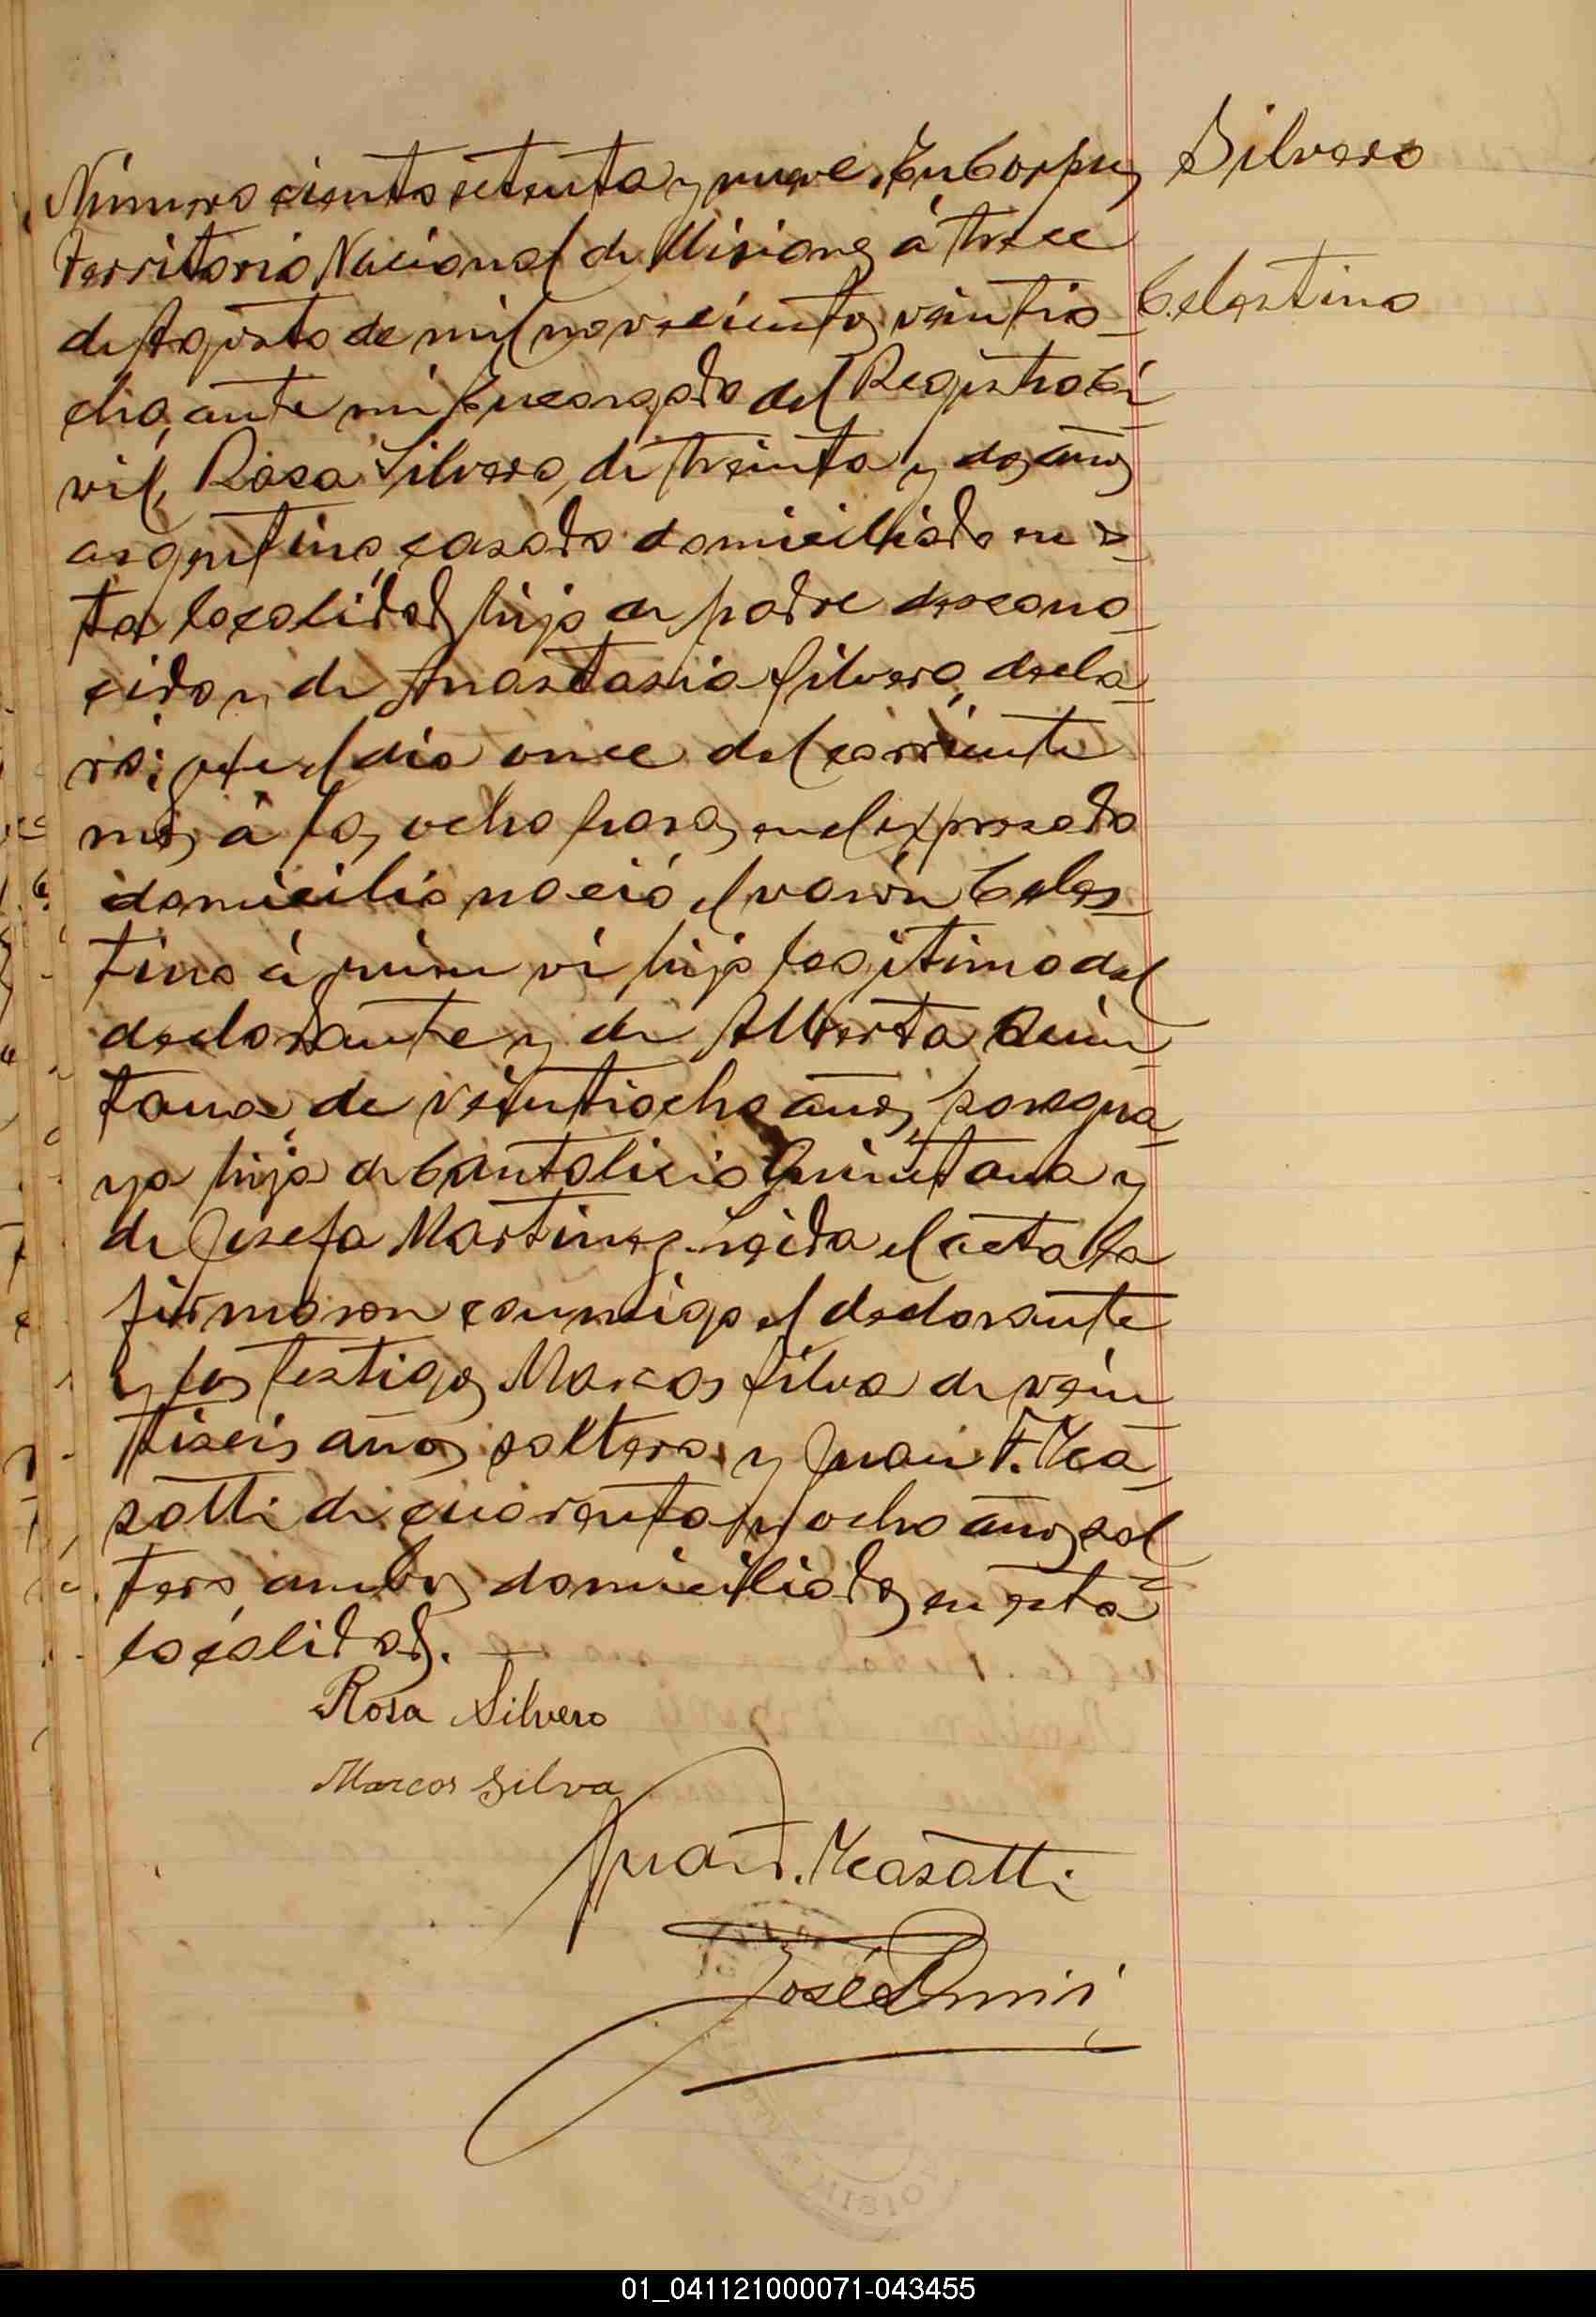 Silvero
Celestino
Número ciento setenta y nueve. En Corpus
territorio Nacional de Misiones á trece
de Agosto de mil novecientos veintio-
cho, ante mí Encargado del Registro Ci-
vil, Rosa Silvero, de treinta y dos años
argentino, casado domiciliado en es-
ta localidad, hijo de padre descono-
cido y de Anastasia Silvero, decla-
ró: que el día once del corriente
mes á las ocho horas en el expresado
domicilio nació el varón Celes-
tino á quien ví hijo legitimo del
declarante y de Alberta Quin-
tana, de veintiocho años, paragua-
ya hija de Cantalicio Quintana y
de Josefa Martinez. Leída el acta la
firmaron conmigo el declarante
y los testigos Marcos Silva de vein-
tiseis años soltero y Juan F.
de cuarenta y ocho años sol-
tero, ambos domiciliados en esta
localidad.
Rosa Silvero
Marcos Silva
Juan F.
José
01_041121000071-043455